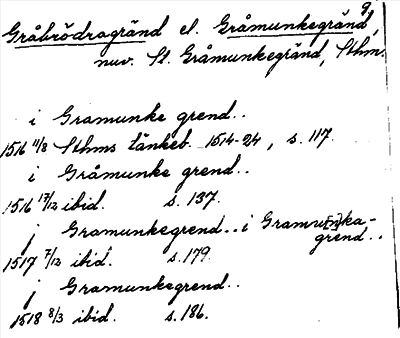 g,
Gråbrödragränd el. Gråmunkegränd,
nuv. St. Gråmunkegränd, Sthm.
i Gramunke grend..
1516 11/8 Sthms tänkeb. 1514-24, s. 117.
i Gråmunke grend..
1516 17/12 ibid. s. 137.
j Gramunkegrend.. i Gramu[n]ka-
grend..
1517 7/12 ibid. s. 179.
j Gramunkegrend..
1518 8/3 ibid. s. 186.